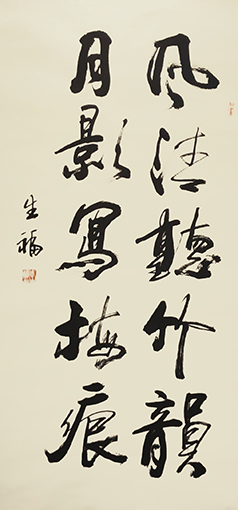 風清聽竹韻
月影寫梅痕
生福